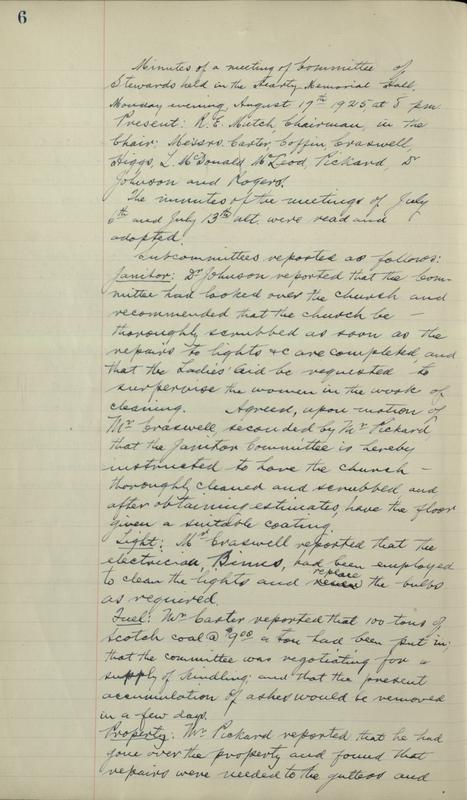 6
Minutes of a meeting of Committee of
Stewards held in the Heartz Memorial Hall,
Monday evening, August 17th 1925 at 8 pm
Present: R. E. Mutch, Chairman, in the
Chair; Messrs. Carter, Coffin, Craswell,
Higgs, L. McDonald, McLeod, Pickard, Dr
Johnson and Rogers.
The minutes of the meetings of July
6th and July 13th ult. were read and
adopted.
Subcommittees reported as follows:
Janitor: Dr Johnson reported that the Com-
mittee had looked over the church and
recommended that the church be –
thoroughly scrubbed as soon as the
repairs to lights &c are completed, and
that the Ladies' Aid be requested to
surpervise the women in the work of
cleaning. Agreed, upon motion of
Mr Craswell seconded by Mr Pickard
that the Janitor Committee is hereby
instructed to have the church –
thoroughly cleaned and scrubbed, and
after obtaining estimates, have the floor
given a suitable coating.
Light: Mr Craswell reported that the
electrician, Binns, had been employed
to clean the lights and replace the bulbs
as required.
Fuel: Mr Carter reported that 100 tons of
Scotch coal @ $9.00 a ton had been put in;
that the committee was negotiating for a
supply of kindling; and that the present
accumulation of ashes would be removed
in a few days.
Property: Mr Pickard reported that he had
gone over the property and found that
repairs were needed to the gutters and